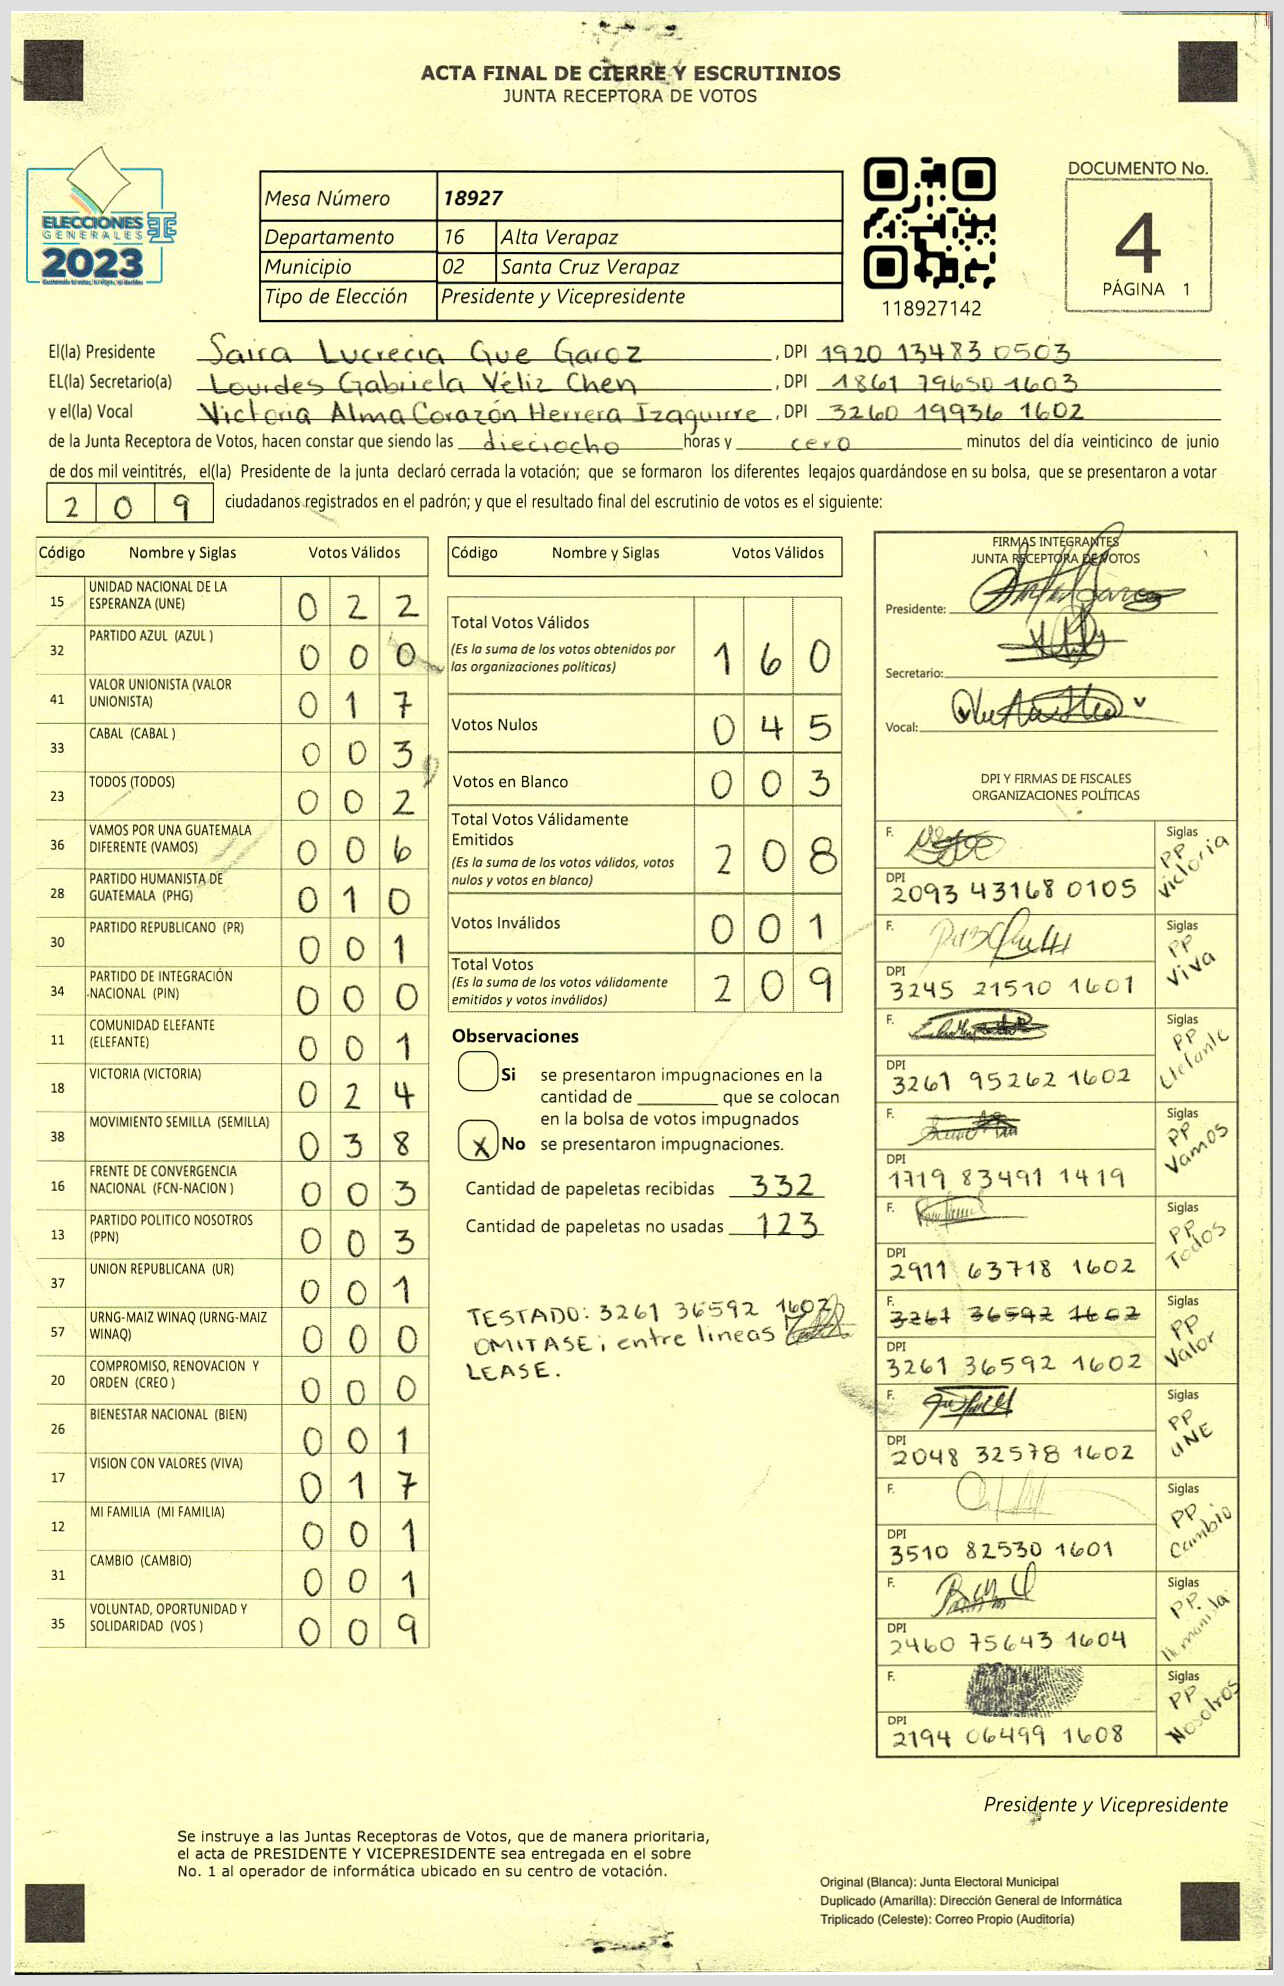 ACTA FINAL DE CIERRE Y ESCRUTINIOS
JUNTA RECEPTORA DE VOTOS
ELECCIONES
GENERALES
2023
Mesa Número 18927
Departamento 16 Alta Verapaz
Municipio 02 Santa Cruz Verapaz
Tipo de Elección Presidente y Vicepresidente
118927142
DOCUMENTO No.
4
PÁGINA 1
El(la) Presidente Saira Lucrecia Gue Garoz , DPI 1920 13483 0503
EL(la) Secretario(a) Lourdes Gabriela Véliz Chen , DPI 1861 79650 1603
y el(la) Vocal Victoria Alma Corazón Herrera Izaguirre , DPI 3260 19936 1602
de la Junta Receptora de Votos, hacen constar que siendo las dieciocho horas y cero minutos del día veinticinco de junio
de dos mil veintitrés, el(la) Presidente de la junta declaró cerrada la votación; que se formaron los diferentes legajos guardándose en su bolsa, que se presentaron a votar
209 ciudadanos registrados en el padrón; y que el resultado final del escrutinio de votos es el siguiente:
Código Nombre y Siglas Votos Válidos
15 UNIDAD NACIONAL DE LA ESPERANZA (UNE) 022
32 PARTIDO AZUL (AZUL ) 000
41 VALOR UNIONISTA (VALOR UNIONISTA) 017
33 CABAL (CABAL ) 003
23 TODOS (TODOS) 002
36 VAMOS POR UNA GUATEMALA DIFERENTE (VAMOS) 006
28 PARTIDO HUMANISTA DE GUATEMALA (PHG) 010
30 PARTIDO REPUBLICANO (PR) 001
34 PARTIDO DE INTEGRACIÓN NACIONAL (PIN) 000
11 COMUNIDAD ELEFANTE (ELEFANTE) 001
18 VICTORIA (VICTORIA) 024
38 MOVIMIENTO SEMILLA (SEMILLA) 038
16 FRENTE DE CONVERGENCIA NACIONAL (FCN-NACION ) 003
13 PARTIDO POLITICO NOSOTROS (PPN) 003
37 UNION REPUBLICANA (UR) 001
57 URNG-MAIZ WINAQ (URNG-MAIZ WINAQ) 000
20 COMPROMISO, RENOVACION Y ORDEN (CREO ) 000
26 BIENESTAR NACIONAL (BIEN) 001
17 VISION CON VALORES (VIVA) 017
12 MI FAMILIA (MI FAMILIA) 001
31 CAMBIO (CAMBIO) 001
35 VOLUNTAD, OPORTUNIDAD Y SOLIDARIDAD (VOS ) 009
Código Nombre y Siglas Votos Válidos
Total Votos Válidos 160
(Es la suma de los votos obtenidos por
las organizaciones políticas)
Votos Nulos 045
Votos en Blanco 003
Total Votos Válidamente
Emitidos 208
(Es la suma de los votos válidos, votos
nulos y votos en blanco)
Votos Inválidos 001
Total Votos 209
(Es la suma de los votos válidamente
emitidos y votos inválidos)
Observaciones
Si se presentaron impugnaciones en la
cantidad de ________ que se colocan
en la bolsa de votos impugnados
X No se presentaron impugnaciones.
Cantidad de papeletas recibidas 332
Cantidad de papeletas no usadas 123
TESTADO: 3261 36592 1602
OMITASE; entre lineas
LEASE.
FIRMAS INTEGRANTES
JUNTA RECEPTORA DE VOTOS
Presidente:
Secretario:
Vocal:
DPI Y FIRMAS DE FISCALES
ORGANIZACIONES POLÍTICAS
F. Siglas PP Victoria
DPI 2093 43168 0105
F. Siglas PP Viva
DPI 3245 21510 1601
F. Siglas PP Elefante
DPI 3261 95262 1602
F. Siglas PP Vamos
DPI 1719 83491 1419
F. Siglas PP Todos
DPI 2911 63718 1602
F. 3261 36592 1602 Siglas PP Valor
DPI 3261 36592 1602
F. Siglas PP UNE
DPI 2048 32578 1602
F. Siglas PP Cambio
DPI 3510 82530 1601
F. Siglas PP. Humanista
DPI 2460 75643 1604
F. Siglas PP Nosotros
DPI 2194 06499 1608
Presidente y Vicepresidente
Se instruye a las Juntas Receptoras de Votos, que de manera prioritaria,
el acta de PRESIDENTE Y VICEPRESIDENTE sea entregada en el sobre
No. 1 al operador de informática ubicado en su centro de votación.
Original (Blanca): Junta Electoral Municipal
Duplicado (Amarilla): Dirección General de Informática
Triplicado (Celeste): Correo Propio (Auditoría)